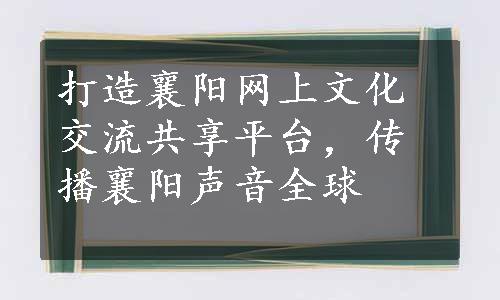 打造襄阳网上文化
交流共享平台，传
播襄阳声音全球